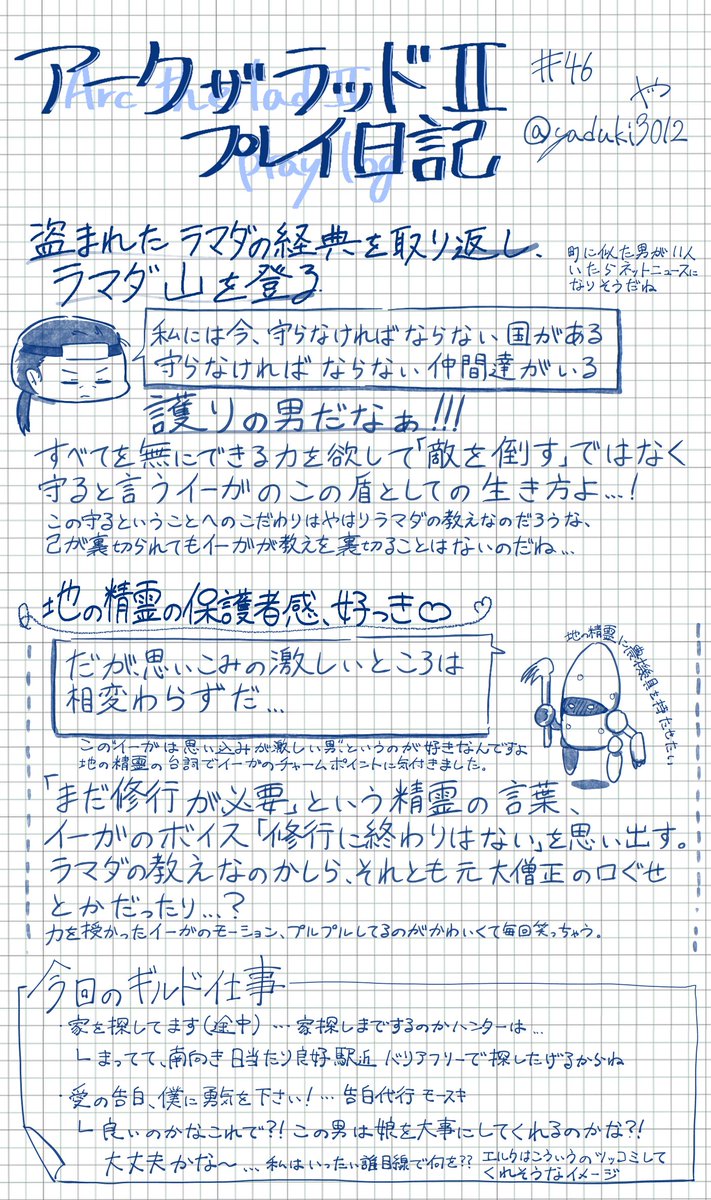 アークザラッドⅡ
Arc the lad Ⅱ
プレイ日記
play log
#46
やつ
@yaduki3012
盗まれたラマダの経典を取り返し、
ラマダ山を登る
町に似た男が11人
いたらネットニュースに
なりそうだね
私には今、守らなければならない国がある
守らなければならない仲間達がいる
護りの男だなぁ!!!
すべてを無にできる力を欲して「敵を倒す」ではなく
守ると言うイーガのこの盾としての生き方よ…!
この守るということへのこだわりはやはりラマダの教えなのだろうな、
己が裏切られてもイーガが教えを裏切ることはないのだね…
地の精霊の保護者感、好っき♡
だが、思いこみの激しいところは
相変わらずだ…
地の精霊に農機具を持たせたい
この"イーガは思い込みが激しい男"というのが好きなんですよ
地の精霊の台詞でイーガのチャームポイントに気付きました。
「まだ修行が必要」という精霊の言葉、
イーガのボイス「修行に終わりはない」を思い出す。
ラマダの教えなのかしら、それとも元大僧正の口ぐせ
とかだったり…?
力を授かったイーガのモーション、プルプルしてるのがかわいくて毎回笑っちゃう。
今回のギルド仕事
・家を探してます(途中) …家探しまでするのかハンターは…
└まってて、南向き日当たり良好駅近バリアフリーで探したげるからね
・愛の告白、僕に勇気を下さい!…告白代行モースキ
└良いのかなこれで?!この男は娘を大事にしてくれるのかな?!
大丈夫かな〜…私はいったい誰目線で何を??
エルクはこういうのツッコミして
くれそうなイメージ